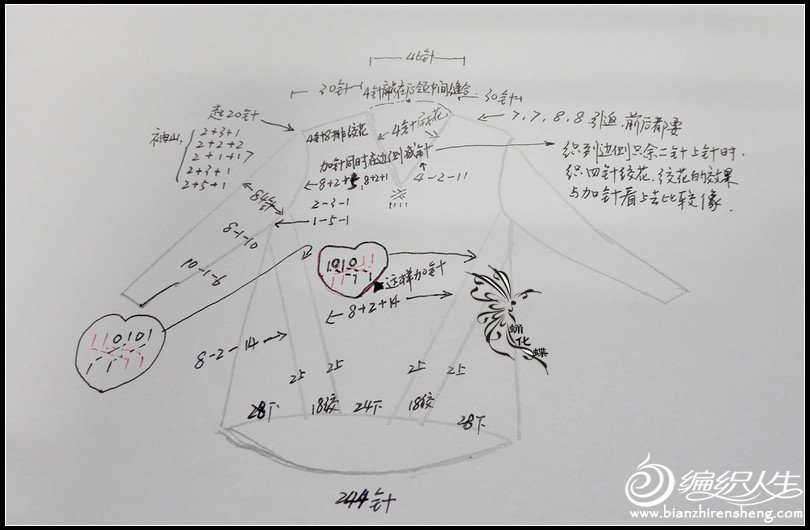 46针
30针
4针前在后领中间缝合
30针
起20针
袖山
2+3+1
2+2+2
2+1+17
2+3+1
2+5+1
84针
8-1-10
10-1-6
4针8排绞花
4针后花
加针同时在边侧减针
8+2+5,8+2+1
4-2-11
2-3-1
1-5-1
7、7、8、8引退,前后都要
织到边侧只余二针上针时,
织四针绞花,绞花的效果
与加针看上去比较像.
这样加针
8+2+14
8-2-14
蛹
化
蝶
25
25
25
25
28下
18绞
24下
18绞
28下
244针
编织人生
www.bianzhirensheng.com